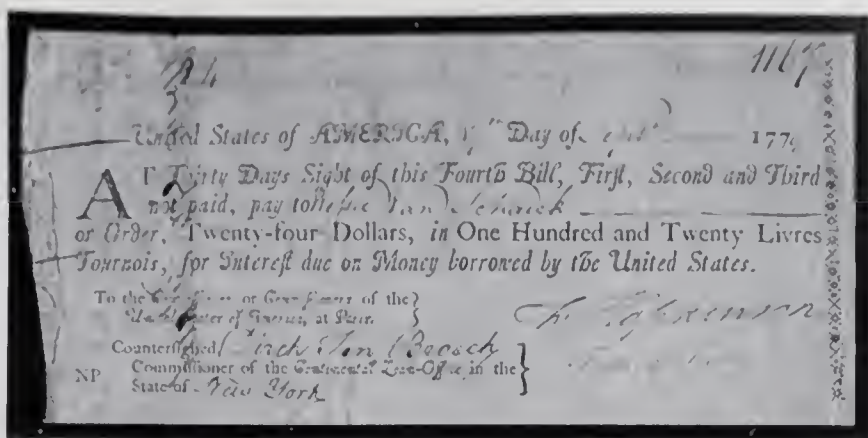 1167
United States of AMERICA, Day of 177
AT Thirty Days Sight of this Fourth Bill, First, Second and Third
not paid, pay to Van Schaick
or Order, Twenty-four Dollars, in One Hundred and Twenty Livres
Tournois, for Interest due on Money borrowed by the United States.
To the Commissioner or Commissioners of the
United States of America, at Paris.
Countersigned
NP Commissioner of the Continental Loan-Office, in the
State of New York